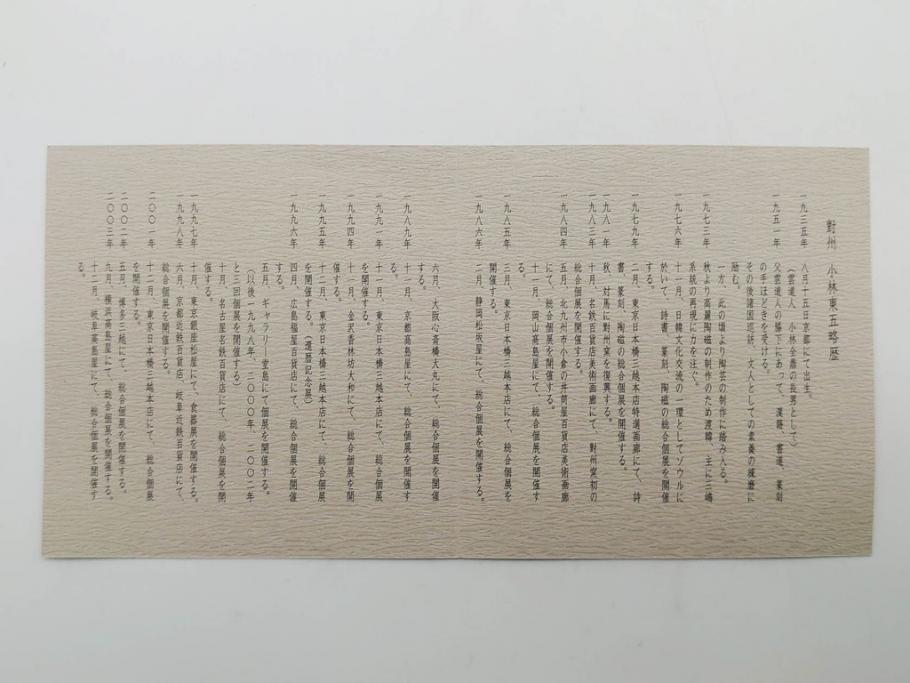 對州 小林東五略歴
一九三五年 八月十五日京都にて出生。
(雲道人 小林全鼎の哉男として)
一九五一年 父雲道人の膝下にあって、漢籍、書道、篆刻
の手ほどきを受ける。
その後諸国巡訪、文人としての素養の練磨に
励む。
一方、此の頃より陶芸の制作に踏み入る。
一九七三年 秋より高麗陶磁の制作のため渡韓、主に三嶋
系統の再現に力を注ぐ。
一九七六年 十一月、日韓文化交流の一環としてソウルに
於いて、詩書、篆刻、陶磁の総合個展を開催
する。
一九七九年 二月、東京日本橋三越本店特選画廊にて、詩
書、篆刻、陶磁の総合個展を開催する。
一九八一年 秋、対馬に對州窯を復興する。
一九八三年 十月、名鉄百貨店美術画廊にて、對州窯初の
総合個展を開催する。
一九八四年 五月、北九州市小倉の井筒屋百貨店美術画廊
にて、総合個展を開催する。
十一月、岡山髙島屋にて、総合個展を開催す
る。
一九八五年 三月、東京日本橋三越本店にて、総合個展を
開催する。
一九八六年 二月、静岡松坂屋にて、総合個展を開催する。
六月、大阪心斎橋大丸にて、総合個展を開催
する。
一九八九年 十一月、京都髙島屋にて、総合個展を開催す
る。
一九九一年 十一月、東京日本橋三越本店にて、総合個展
を開催する。
一九九四年 十一月、金沢香林坊大和にて、総合個展を開
催する。
一九九五年 十二月、東京日本橋三越本店にて、総合個展
を開催する。(還暦記念展)
一九九六年 四月、広島福屋百貨店にて、総合個展を開催
する。
五月、ギャラリー堂島にて個展を開催する。
(以後一九九八年、二〇〇〇年、二〇〇二年
と三回個展を開催する)
十月、名古屋名鉄百貨店にて、総合個展を開
催する。
一九九七年 十月、東京銀座松屋にて、食器展を開催する。
一九九八年 六月、京都近鉄百貨店、岐阜近鉄百貨店にて、
総合個展を開催する。
二〇〇一年 十二月、東京日本橋三越本店にて、総合個展
を開催する。
二〇〇二年 五月、博多三越にて、総合個展を開催する。
二〇〇三年 九月、横浜髙島屋にて、総合個展を開催する。
十二月、岐阜髙島屋にて、総合個展を開催す
る。